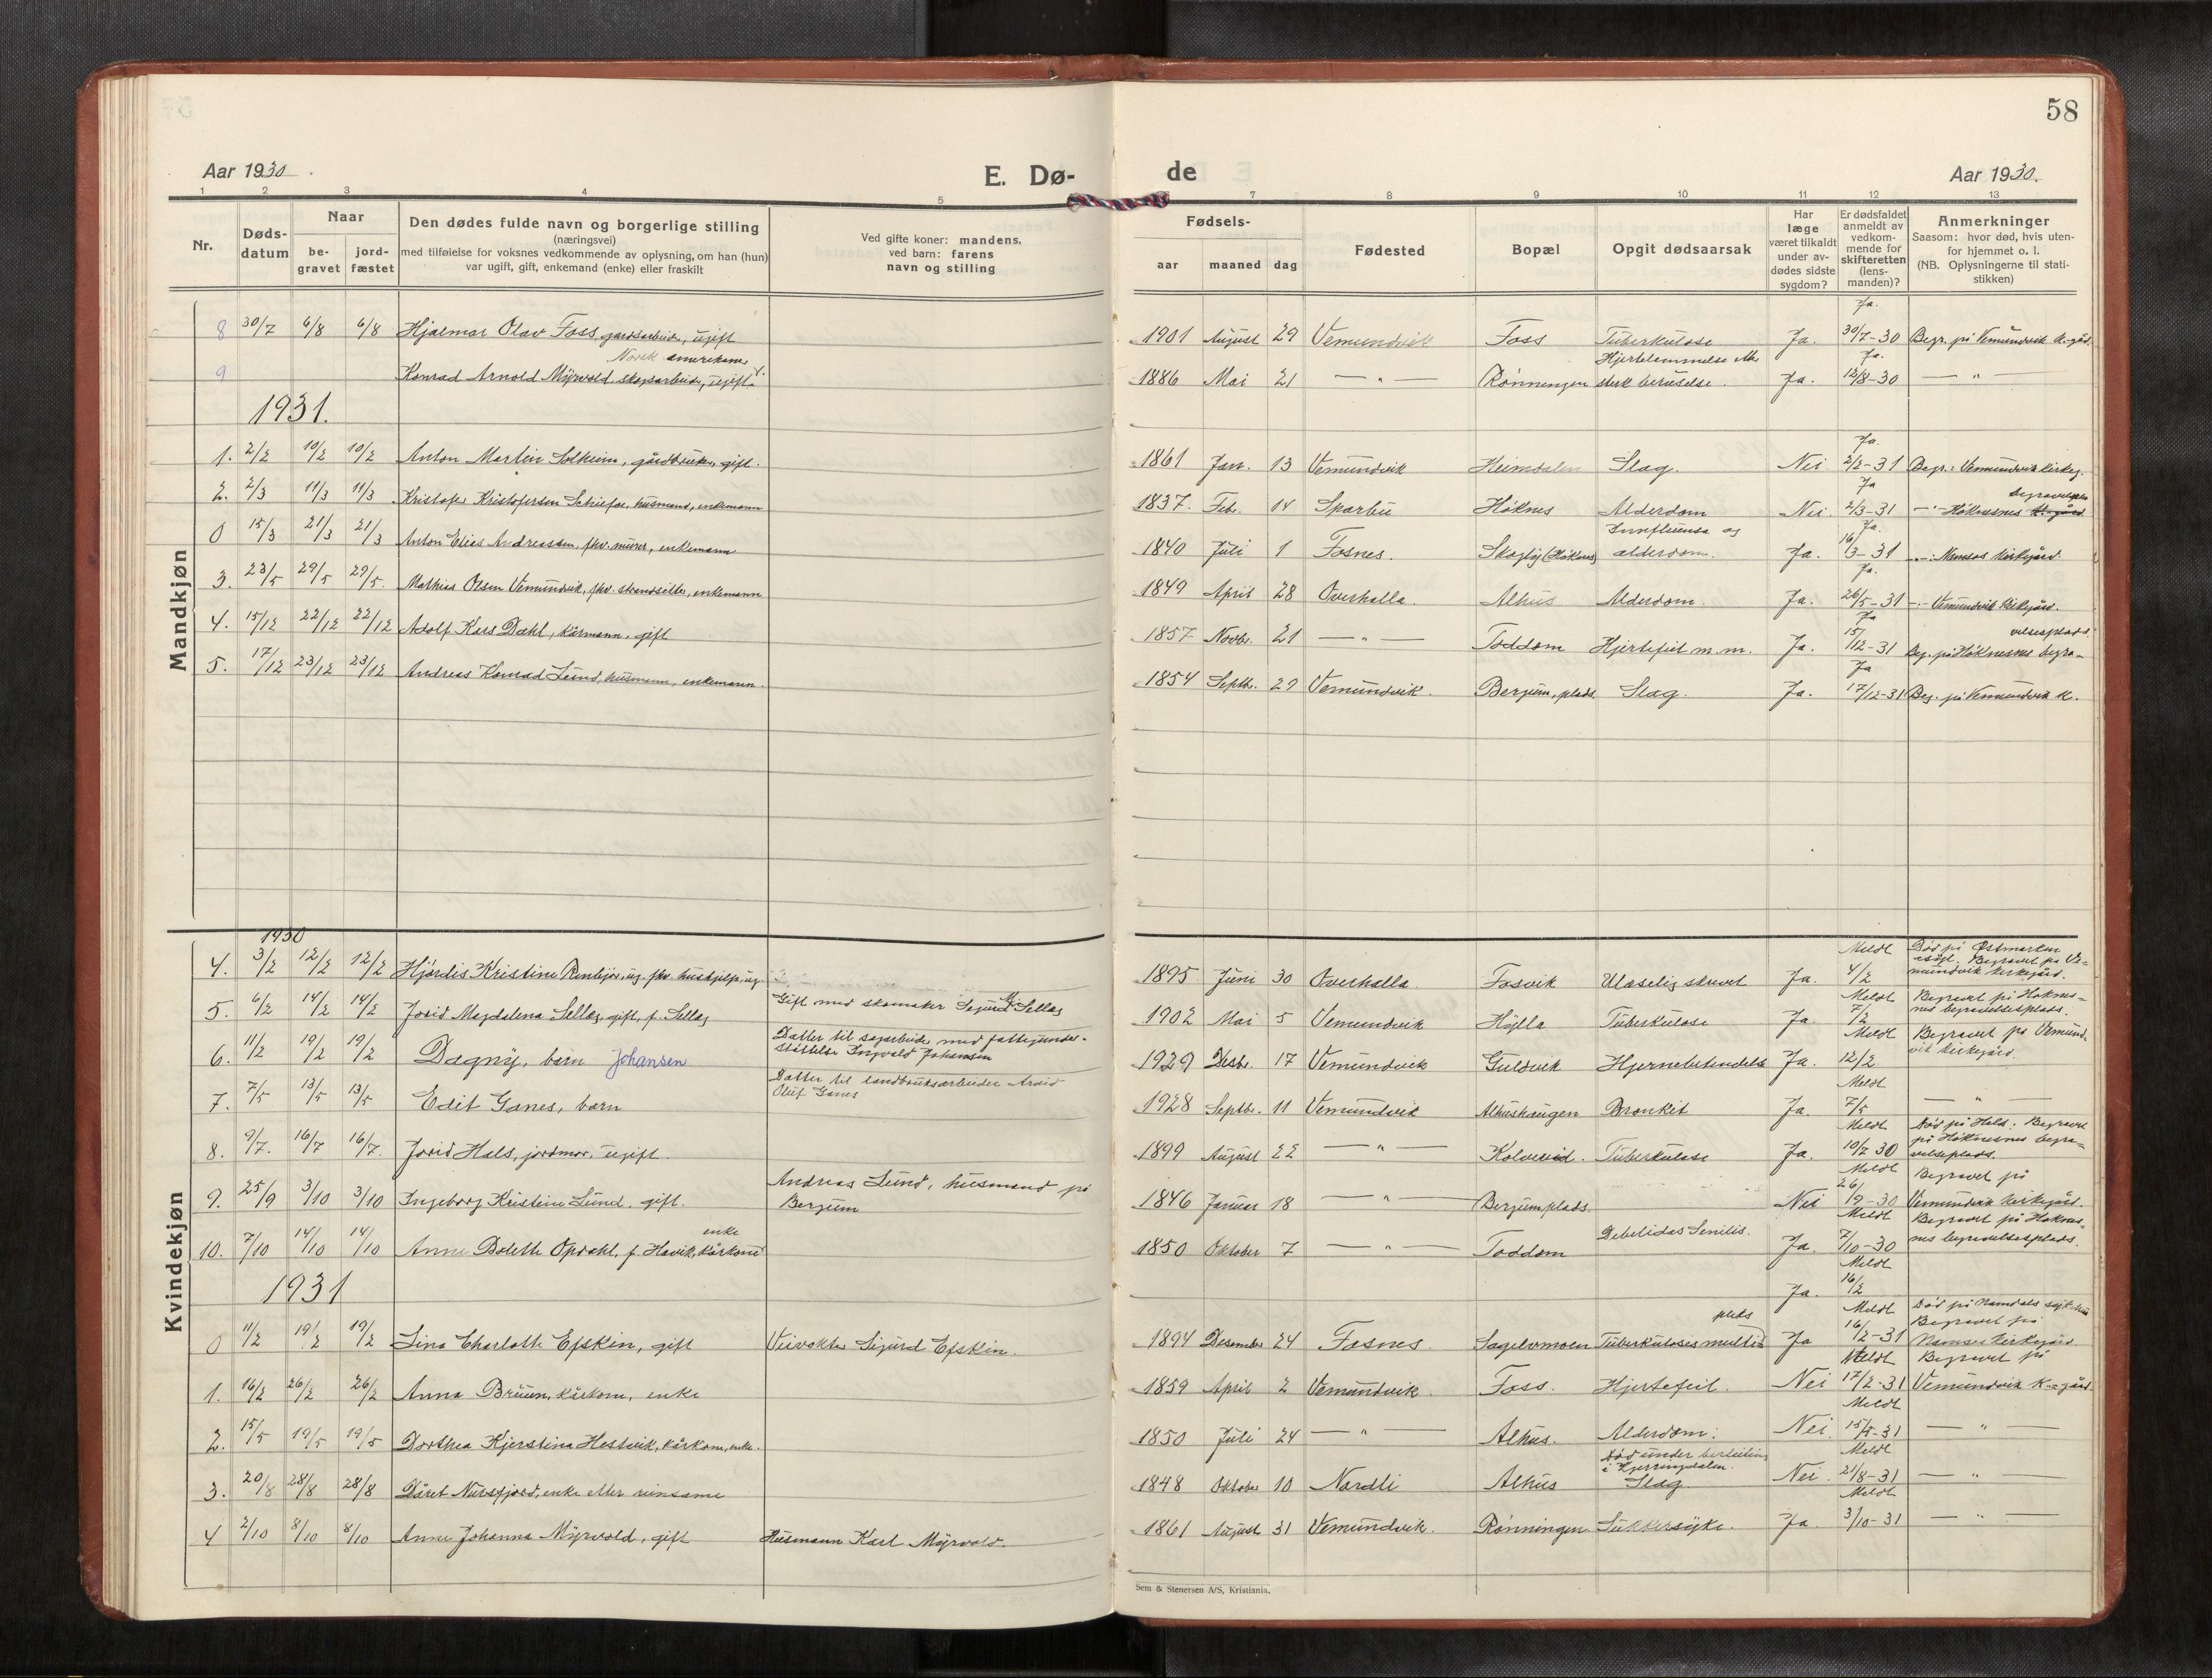 58
Aar 1930
E. Dø-
de
Aar 1930.
1 2 3 4 5
7 8 9 10 11 12 13
Nr.
Døds-
datum
Naar
be-
gravet
jord-
fæstet
Den dødes fulde navn og borgerlige stilling
(næringsvei)
med tilføielse for voksnes vedkommende av oplysning, om han (hun)
var ugift, gift, enkemand (enke) eller fraskilt
Ved gifte koner: mandens,
ved barn: farens
navn og stilling
Fødsels-
aar maaned dag
Fødested
Bopæl
Opgit dødsaarsak
Har
læge
været tilkaldt
under av-
dødes sidste
sygdom?
Er dødsfaldet
anmeldt av
vedkom-
mende for
skifteretten
(lens-
manden)?
Anmerkninger
Saasom: hvor død, hvis uten-
for hjemmet o. l.
(NB. Oplysningerne til stati-
stikken)
Mandkjøn
8 30/7 6/8 6/8 Hjalmar Olav Foss, gaardsarbeider, ugift 1901 August 29 Vemundvik Foss Tuberkulose Ja. Ja. 30/7-30 Begr. på Vemundvik k-gård.
Norsk amerikaner
9 Konrad Arnold Myrvold, skogsarbeider, ugift 1886 Mai 21 — " — Rønningen Hjertelammelse etter sterk beruselse. Ja. Ja. 12/8-30 — " —
1931.
1. 2/2 10/2 10/2 Anton Martin Solheim, gårdbruker, gift. 1861 Jan. 13 Vemundvik Heimdalen Slag. Nei Ja. 2/2-31 Begr: Vemundvik kirkeg.
2. 2/3 11/3 11/3 Kristofer Kristofersen husmand, enkemann 1837. Febr. 14 Sparbu Høknes Alderdom Nei. Ja 2/3-31 — " — Høknesnes begravelsespl.
0 15/3 21/3 21/3 Anton Elias Andreassen, fhv. murer, enkemann 1840 Juli 1 Fosnes. Skogly (Høknes) Innfluensa og alderdom. Ja. Ja. 16/3-31 Namsos kirkegård.
3. 23/5 29/5 29/5. Mathias Olsen Vemundvik, fhv. strandsitter, enkemann 1849 April 28 Overhalla. Alhus Alderdom. Ja. Ja. 26/5-31 — " — Vemundvik kirkegård.
4. 15/12 22/12 22/12 Adolf Kars Dahl, kårmann, gift 1857 Novbr. 21 — " — Toddom Hjertefeil m.m. Ja. Ja 15/12-31 Beg. på Høknesnes begra-
velsesplads.
5. 17/12 23/12 23/12 Andreas Konrad Lund, husmann, enkemann. 1854 Septb. 29 Vemundvik. Bergum, plads Slag. Ja. Ja 17/12-31 Beg. på Vemundvik k.
Kvindekjøn
1930
4. 3/2 12/2 12/2 Hjørdis Kristine ug. fhv. hushjelp, ug 1895 Juni 30 Overhalla. Fosvik Ulæselig skrevet Ja. Meldt 4/2 Død på Østmarken
asyl. Begravet på Ve-
mundvik kirkegård.
5. 6/2 14/2 14/2 Jorid Magdalena Sellæg, gift, f. Sellæg Gift med skomaker Sigurd Sellæg 1902 Mai 5 Vemundvik Hylla Tuberkulose Ja. Meldt 7/2 Begravet på Høknes-
nes begravelsesplads.
6. 11/2 19/2 19/2 Dagny, barn Johansen Datter til sagarbeider med fattigunder-
støttelse Ingvald Johansen 1929 Desbr. 17 Vemundvik Guldvik Hjernebetendelse Ja. Meldt 12/2 Begravet på Vemund-
vik kirkegård.
7. 7/5 13/5 13/5 Edit Ganes, barn Datter til landbruksarbeider Arvid
Oluf Ganes 1928 Septbr. 11 Vemundvik Alhushaugen Bronkit Ja. Meldt 7/5 — " —
8. 9/7. 16/7 16/7. Jorid Hals, jordmor, ugift 1899 August 22 — " — Kolvereid. Tuberkulose Ja. Meldt 10/7 30 Død på Hals. Begravet
på Høknesnes begra-
velseplads.
9. 25/9 3/10 3/10 Ingeborg Kristine Lund, gift. Andreas Lund, husmand på
Bergum 1846 Januar 18 — " — Bergumplads. Nei Meldt 26/9-30 Begravet på
Vemundvik kirkegård.
10. 7/10 14/10 14/10 Anne Bolette Opdahl, f. Havik, kårkone enke 1850 Oktober 7 — " — Toddom Debelidas Senilis. Ja. Meldt 7/10-30 Begravet på Høknes-
nes begravelsesplads.
1931
Ja. Meldt 16/2
0 11/2 19/2 19/2 Lina Charlotte Efskin, gift Veivokter Sigurd Efskin. 1894 Desember 24 Fosnes. Sagelvmoen Tuberkulosis multi-
pleks Ja Meldt 16/2-31 Død på Namdals sykehus
Begravet på
Namsos kirkegård.
1. 16/2 26/2 26/2 Anna Bruun, kårkone, enke 1859 April 2 Vemundvik. Foss. Hjertefeil. Nei Meldt 17/2-31 Begravet på
Vemundvik k-gård.
2. 15/5 19/5 19/5 Dorthea Kjerstina Hestvik, kårkone, enke. 1850 Juli 24 — " — Alhus. Alderdom. Nei. Meldt 15/5-31 — " —
3. 20/8 28/8 28/8 Dåret Nursfjord, enke etter 1848 Oktober 10 Nordli Alhus Død under
i
Slag Nei. Meldt 21/8-31 — " —
4 2/10 8/10 8/10 Anne Johanna Myrvold, gift Husmann Karl Myrvold. 1861 August 31 Vemundvik. Rønningen Sukkersyke. Ja. Meldt 3/10-31 — " —
Sem & Stenersen A/S, Kristiania.